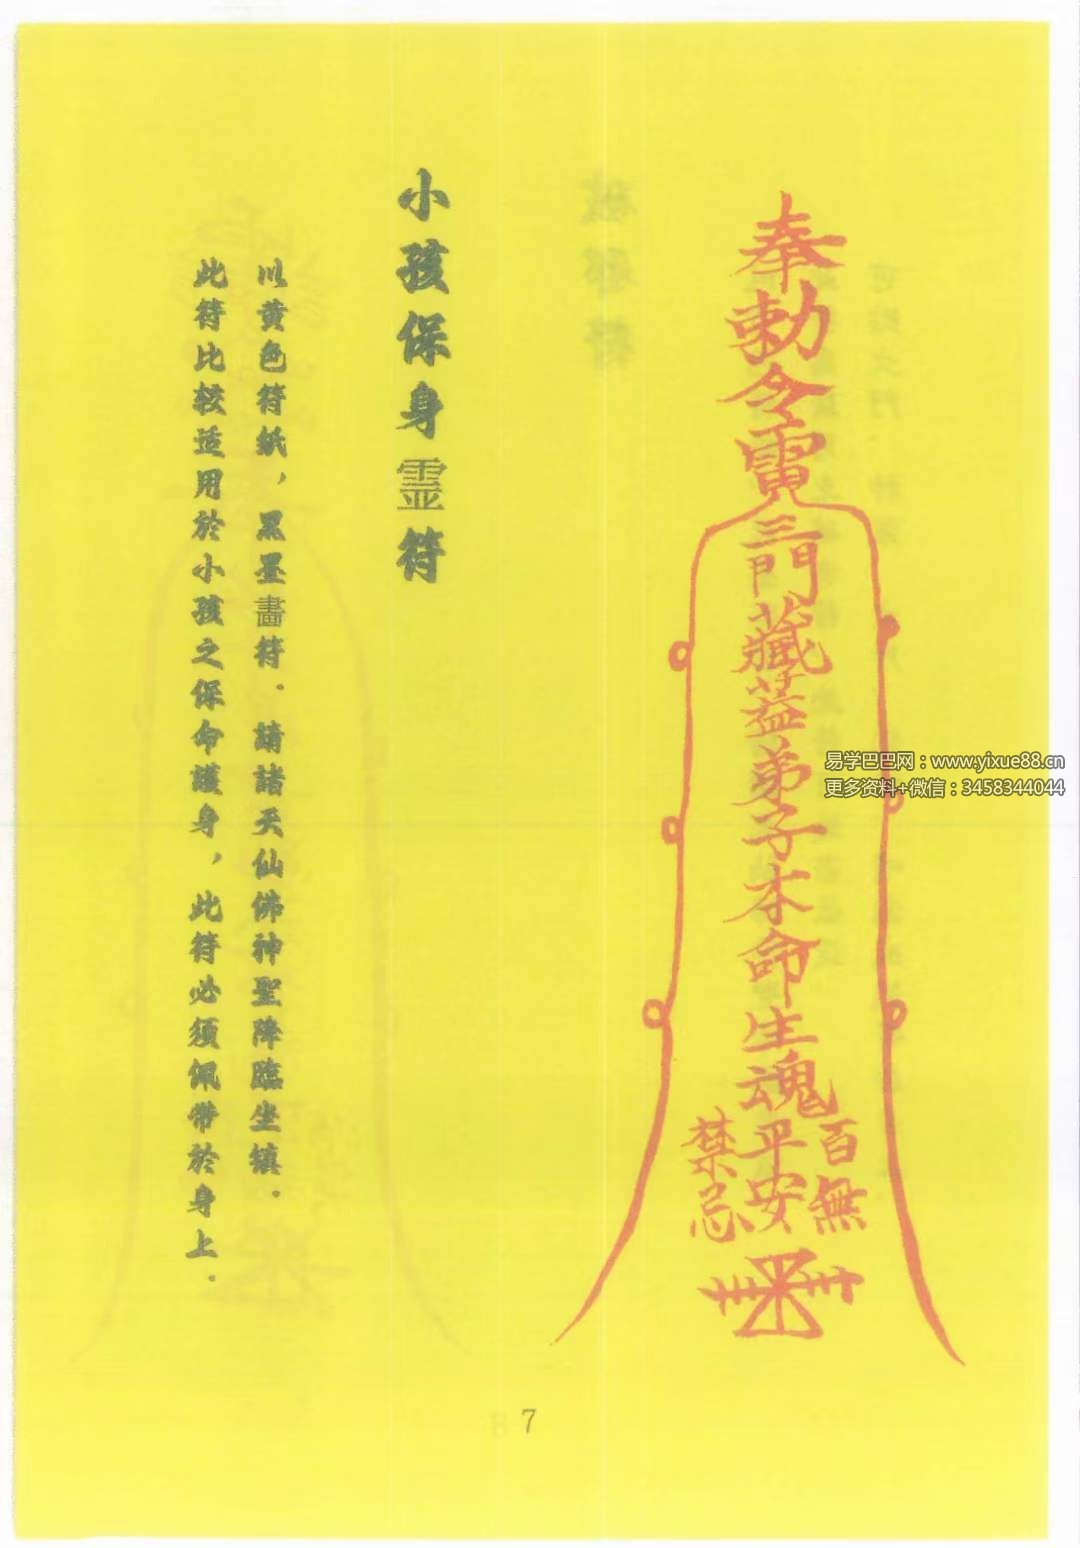 奉勅令雷
三門藏蓋弟子本命生魂
百無
平安
禁忌
小孩保身霊符
以黄色符紙，黑墨畵符．請諸天仙佛神聖降臨坐鎮．
此符比较适用於小孩之保命護身，此符必须佩带於身上．
易学巴巴网：www.yixue88.cn
更多资料+微信：3458344044
7